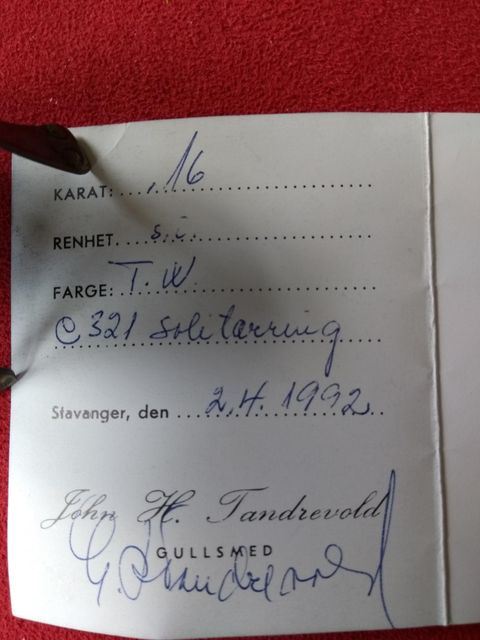 KARAT: ,16
RENHET. s.i.
FARGE: T.W
C 321 Solitærring
Stavanger, den 2.4.1992.
John H. Tandrevold
GULLSMED